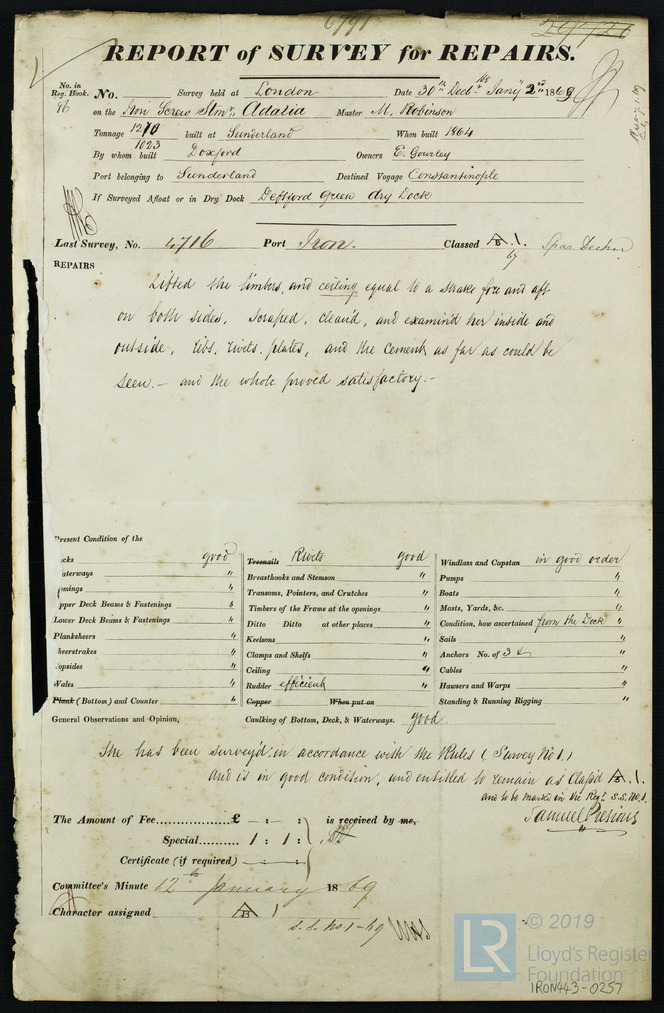 6791
REPORT of SURVEY for REPAIRS.
No. in Reg. Book. 86
No. Survey held at London Date 30th Decr 68 Jany 2nd 1869
on the Iron Screw Stmr. Adalia Master M. Robinson
Tonnage 1210 / 1023 built at Sunderland When built 1864
By whom built Doxford Owners E. Gourley
Port belonging to Sunderland Destined Voyage Constantinople
If Surveyed Afloat or in Dry Dock Deptford Green dry Dock
Last Survey, No. 4716 Port Iron. Classed A.1. 67 Spar Decked
REPAIRS
Lifted the limbers, and ceiling equal to a strake fore and aft
on both sides, scraped, clean'd, and examin'd her inside and
outside, ribs, rivets, plates, and the cement as far as could be
seen. — and the whole proved satisfactory. —
Present Condition of the
cks good
aterways "
mings "
pper Deck Beams & Fastenings "
Lower Deck Beams & Fastenings "
Planksheers "
heerstrakes "
opsides "
Wales "
Plank (Bottom) and Counter "
General Observations and Opinion,
Treenails Rivets good
Breasthooks and Stemson "
Transoms, Pointers, and Crutches "
Timbers of the Frame at the openings "
Ditto Ditto at other places "
Keelsons "
Clamps and Shelfs "
Ceiling "
Rudder efficient "
Copper When put on
Caulking of Bottom, Deck, & Waterways. good
Windlass and Capstan in good order
Pumps "
Boats "
Masts, Yards, &c. "
Condition, how ascertained from the Deck "
Sails "
Anchors No. of 3 &
Cables "
Hawsers and Warps "
Standing & Running Rigging "
She has been survey'd, in accordance with the Rules (Survey No 1.)
and is in good condition, and entitled to remain as Class'd A.1.
and to be marked in the Regr. S.S. No.1.
Samuel Presious
The Amount of Fee £ — : — : is received by me,
Special 1 : 1 :
Certificate (if required) — : — :
Committee's Minute 12th January 1869
Character assigned A 1
S.S. No 1-69
LR
© 2019
Lloyd's Register
Foundation
IRON443-0257